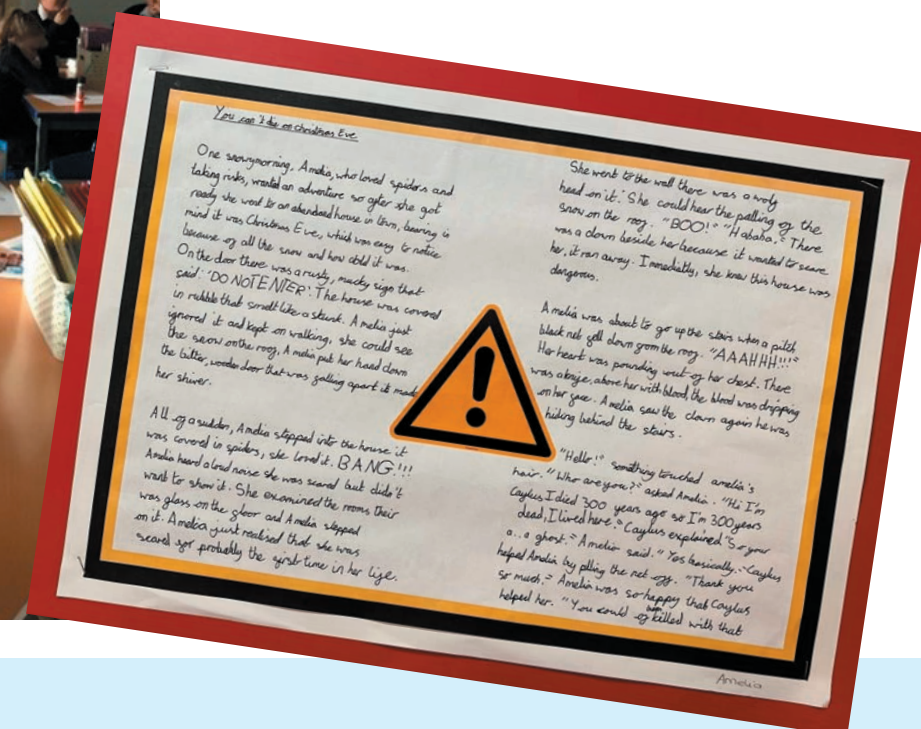 You can't die on Christmas Eve
One snowymorning, Amelia, who loved spiders and
taking risks, wanted an adventure so after she got
ready she went to an abandoned house in town, bearing in
mind it was Christmas Eve, which was easy to notice
because of all the snow and how cold it was.
On the door there was a rusty, mucky sign that
said: 'DO NOT ENTER'. The house was covered
in rubble that smelt like a skunk. Amelia just
ignored it and kept on walking, she could see
the snow on the roof, Amelia put her hand down
the bitter, wooden door that was falling apart it made
her shiver.
All of a sudden, Amelia stepped into the house it
was covered in spiders, she loved it. BANG!!!
Amelia heard a loud noise she was scared but didn't
want to show it. She examined the rooms their
was glass on the floor and Amelia stepped
on it. Amelia just realised that she was
scared for probably the first time in her life.
She went to the wall there was a wolf
head on it. She could hear the falling of the
snow on the roof. "BOO!" "Hahaha." There
was a clown beside her because it wanted to scare
her, it ran away. Immediatly, she knew this house was
dangerous.
Amelia was about to go up the stairs when a pitch
black net fell down from the roof. "AAAHHH!!!"
Her heart was pounding out of her chest. There
was a knife, above her with blood, the blood was dripping
on her face. Amelia saw the clown again he was
hiding behind the stairs.
"Hello!" something touched amelia's
hair. "Who are you?" asked Amelia. "Hi I'm
Caylus I died 300 years ago so I'm 300 years
dead, I lived here." Caylus explained "So your
a.. a ghost." Amelia said. "Yes basically." Caylus
helped Amelia by plling the net off. "Thank you
so much." Amelia was so happy that Caylus
helped her. "You could of been killed with that
Amelia